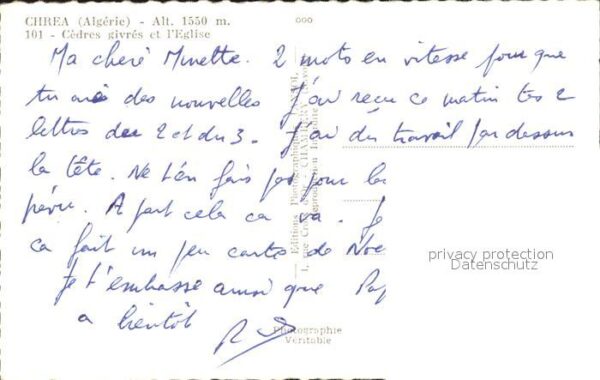 CHREA (Algérie) - Alt. 1550 m.
101 - Cèdres givrés et l'Eglise
Ma cheré Minette. 2 mots en vitesse pour que
tu aies des nouvelles J'ai reçu ce matin tes 2
lettres du 2 et du 3. J'ai du travail par dessus
la tête. Ne t'en fais pas pour la
A part cela ca va. Je
ca fait un peu cartes de Noe
Je t'embrasse ainsi que Pap
a bientôt
privacy protection
Datenschutz
Photographie
Véritable